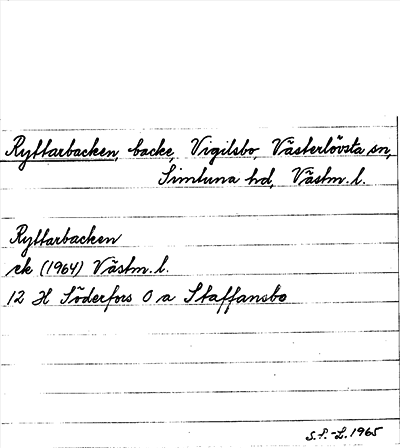 Ryttarbacken, backe, Vigilsbo, Västerlövsta sn,
Simtuna hd, Västm. l.
Ryttarbacken
ek (1964) Västm. l.
12 H Söderfors O a Staffansbo
S.P.-L. 1965